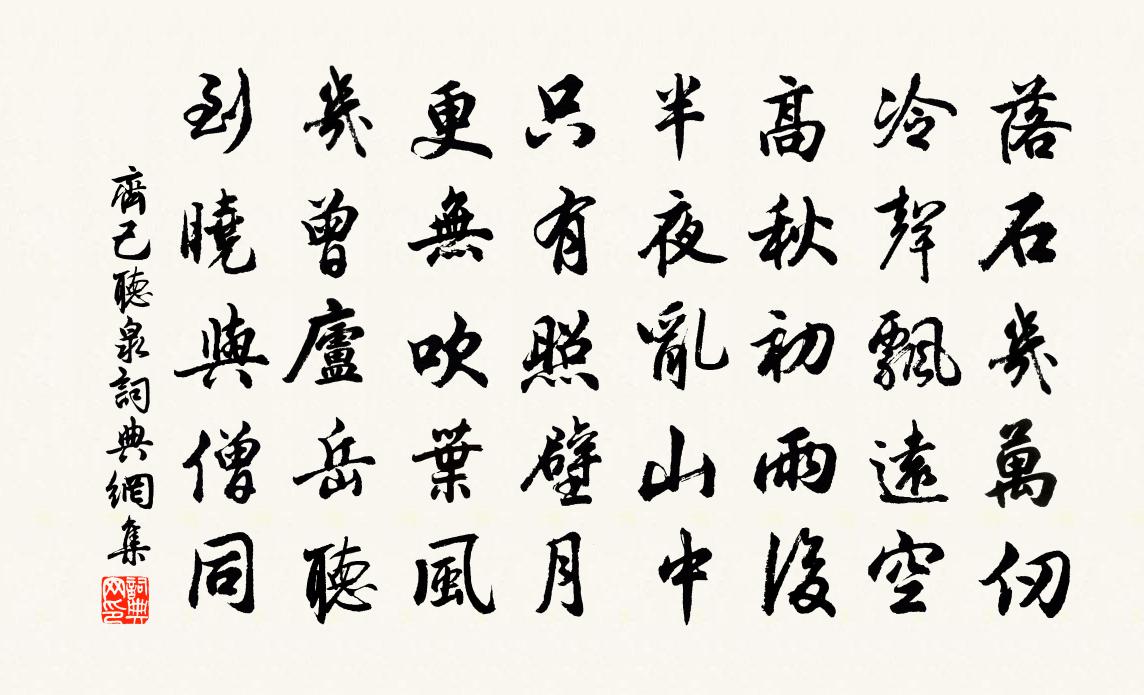 落石幾萬仞
冷聲飄遠空
高秋初雨後
半夜亂山中
只有照壁月
更無吹葉風
幾曾廬岳聽
到曉與僧同
齊己聽泉詞典網集
詞典網印